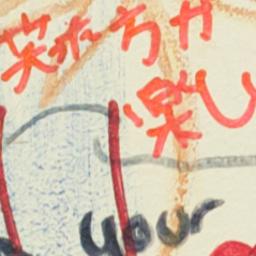 笑た方が
楽し
your